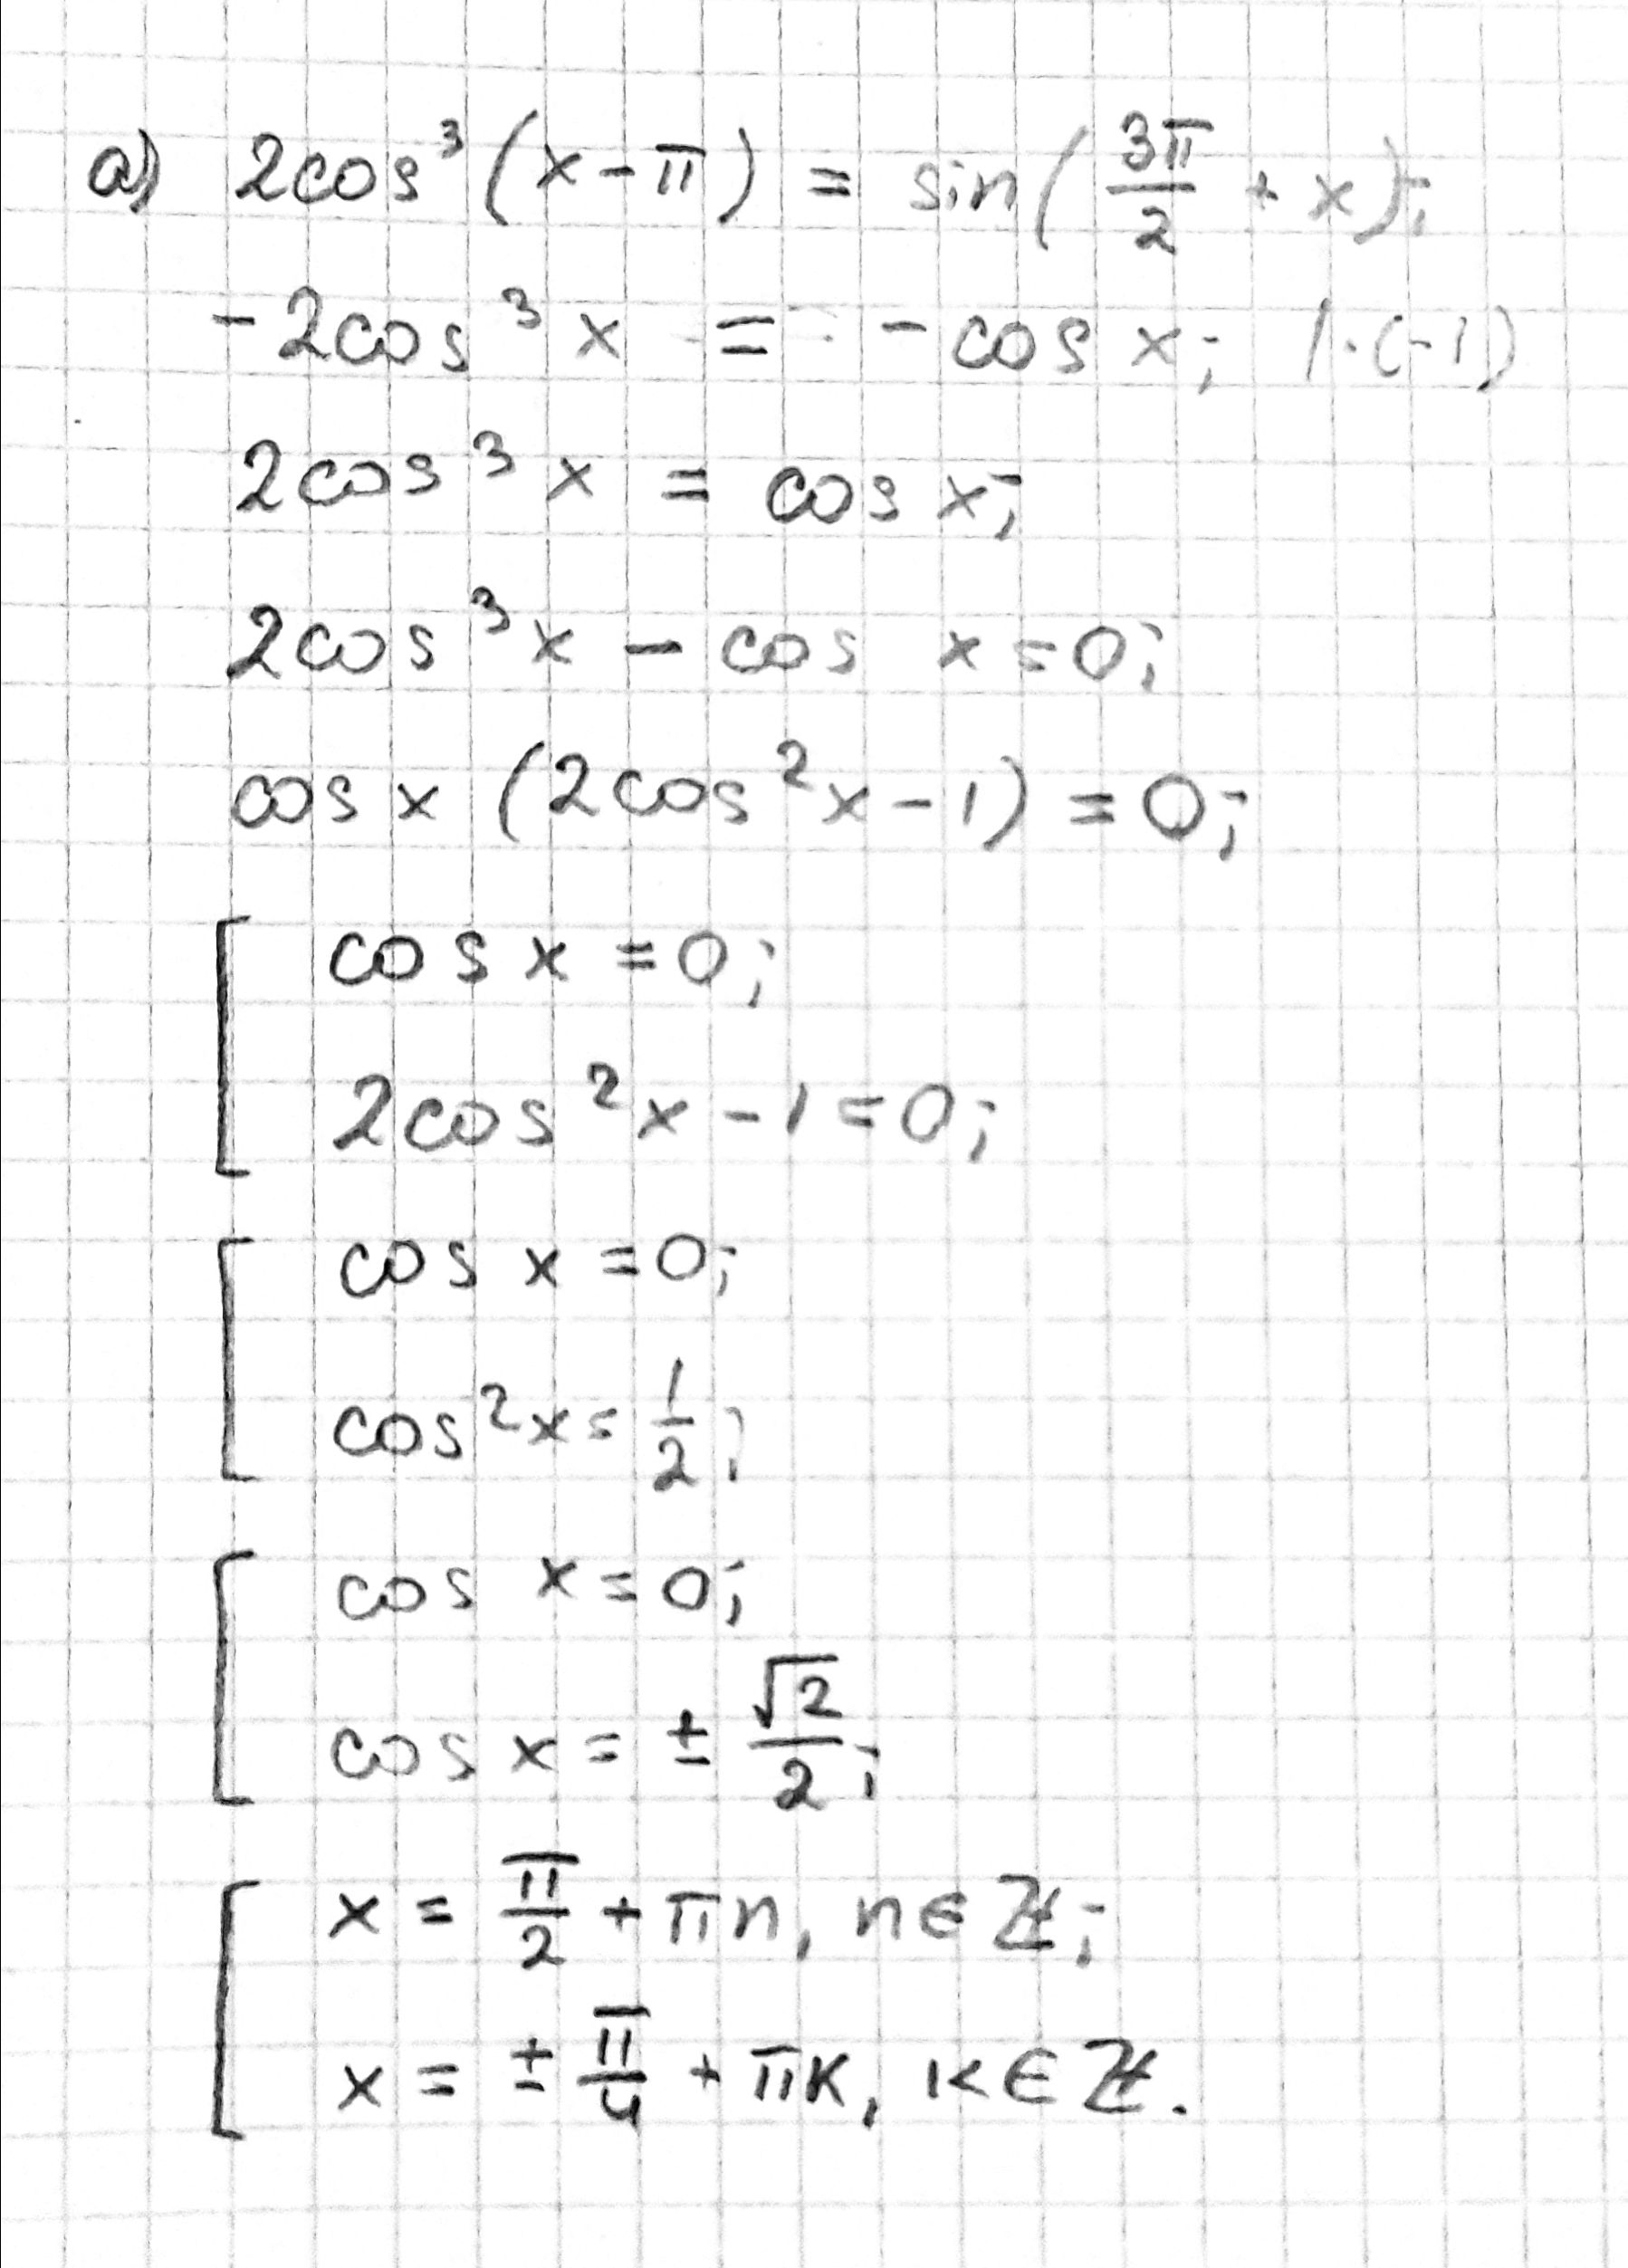 а) 2cos³(x-π) = sin(3π/2 + x);
-2cos³x = -cos x; |·(-1)
2cos³x = cos x;
2cos³x - cos x = 0;
cos x (2cos²x - 1) = 0;
[ cos x = 0;
2cos²x - 1 = 0;
[ cos x = 0;
cos²x = 1/2;
[ cos x = 0;
cos x = ± √2/2;
[ x = π/2 + πn, n ∈ ℤ;
x = ± π/4 + πk, k ∈ ℤ.